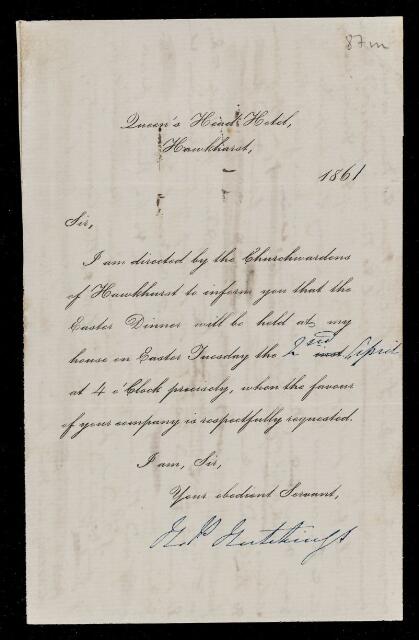 87m
Queen's Head Hotel,
Hawkhurst,
1861
Sir,
I am directed by the Churchwardens
of Hawkhurst to inform you that the
Easter Dinner will be held at my
house on Easter Tuesday the 2nd inst April
at 4 o'Clock precisely, when the favour
of your company is respectfully requested.
I am, Sir,
Your obedient Servant,
Hutchings